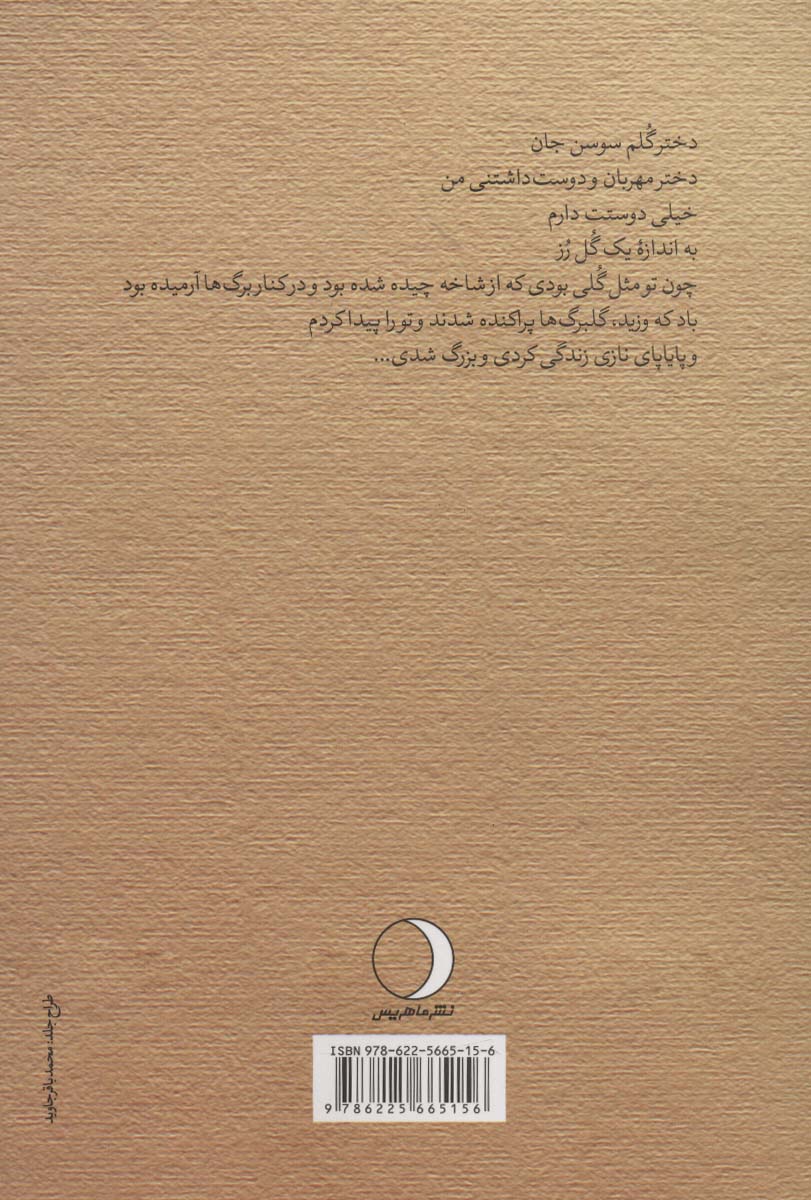 دختر گُلم سوسن جان
دختر مهربان و دوست‌داشتنی من
خیلی دوستت دارم
به اندازۀ یک گُل رُز
چون تو مثل گُلی بودی که از شاخه چیده شده بود و در کنار برگ‌ها آرمیده بود
باد که وزید، گلبرگ‌ها پراکنده شدند و تو را پیدا کردم
و پایاپای نازی زندگی کردی و بزرگ شدی...
نشر ماهریس
ISBN 978-622-5665-15-6
9 786225 665156
طراح جلد: محمدباقر جاوید